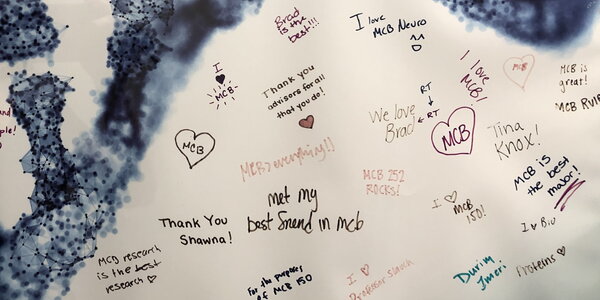 Brad
is the
best!!!
I love
MCB Neuro
I
MCB
Thank you
advisors for all
that you do!
I love
MCB!
MCB
MCB is
great!
MCB
RT
RT
We love
Brad
MCB
Tina
Knox!
MCB
MCB > everything!!
MCB 252
ROCKS!
MCB is
the best
major!
met my
best friend in mcb
I
MCB
150!
Thank You
Shawna!
I Bio
MCB research
is the best
research
For the purposes
of MCB 150
I
Professor
Durim
Imeri
Proteins